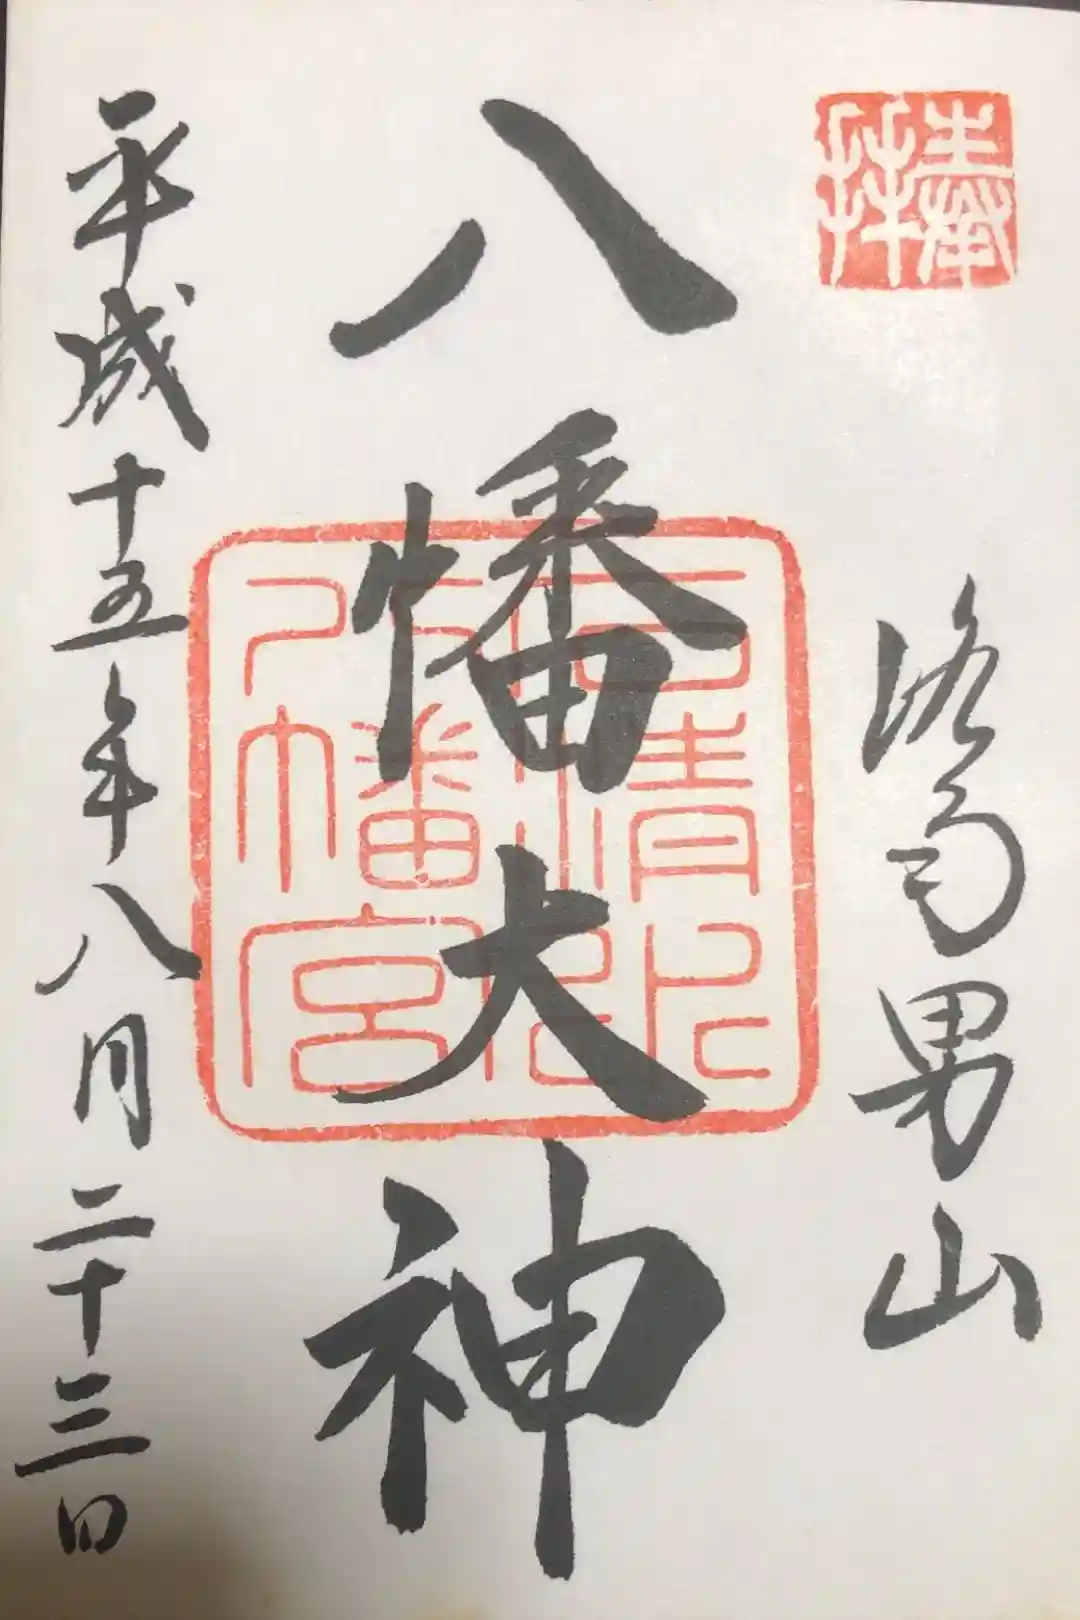 奉拝
洛南男山
八幡大神
石清水八幡宮
平成十五年八月二十三日